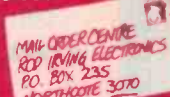 MAIL ORDER CENTRE
ROD IRVING ELECTRONICS
P.O. BOX 235
NORTHCOTE 3070